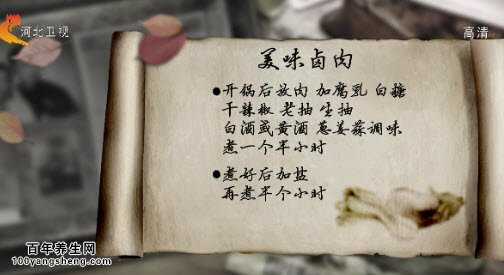 河北卫视
高清
美味卤肉
●开锅后放肉 加腐乳 白糖
干辣椒 老抽 生抽
白酒或黄酒 葱姜蒜调味
煮一个半小时
●煮好后加盐
再煮半个小时
百年养生网
100yangsheng.com